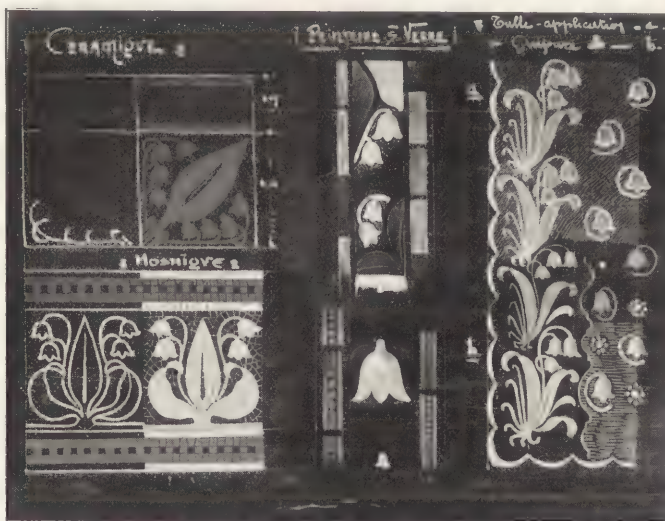 Ceramique
Peinture s. Verre
Tulle-application - a
Guipure - b.
Mosaique